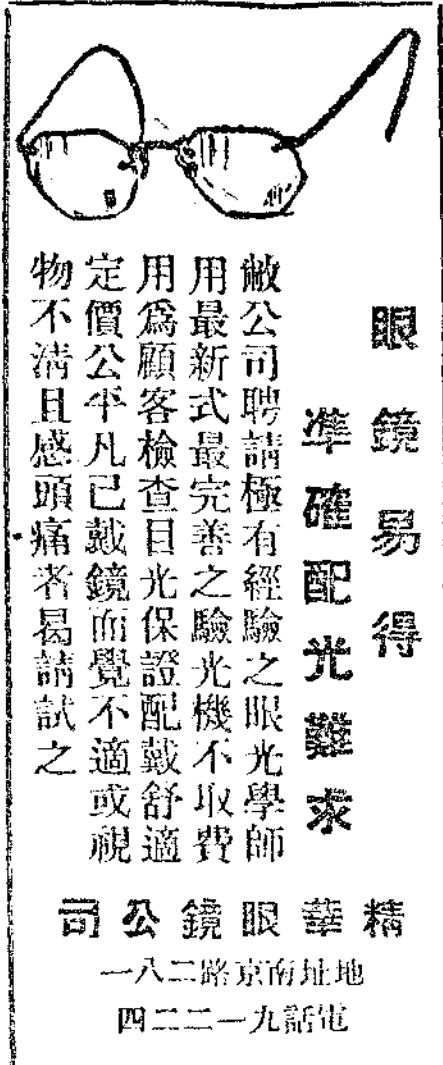 眼鏡易得
準確配光難求
敝公司聘請極有經驗之眼光學師
用最新式最完善之驗光機不取費
用爲顧客檢查目光保證配戴舒適
定價公平凡已戴鏡而覺不適或視
物不清且感頭痛者曷請試之
精華眼鏡公司
地址南京路二八一
電話九一二二四